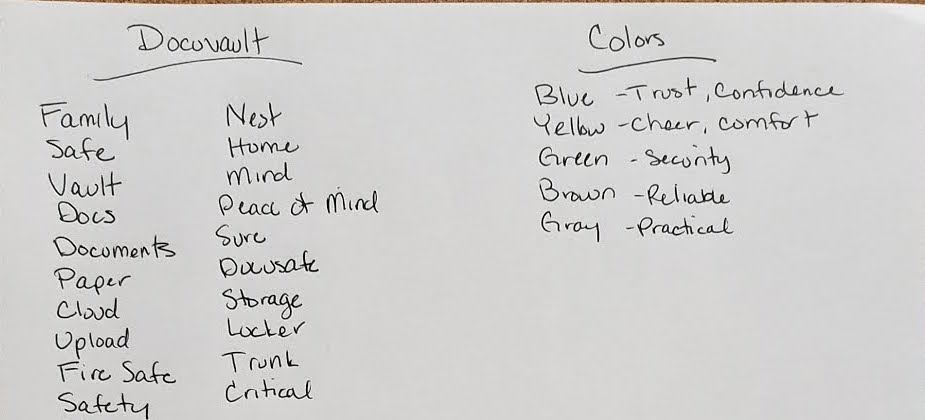 Docuvault
Family
Safe
Vault
Docs
Documents
Paper
Cloud
Upload
Fire Safe
Safety
Nest
Home
Mind
Peace of Mind
Sure
Docusafe
Storage
Locker
Trunk
Critical
Colors
Blue - Trust, Confidence
Yellow - Cheer, comfort
Green - Security
Brown - Reliable
Gray - Practical